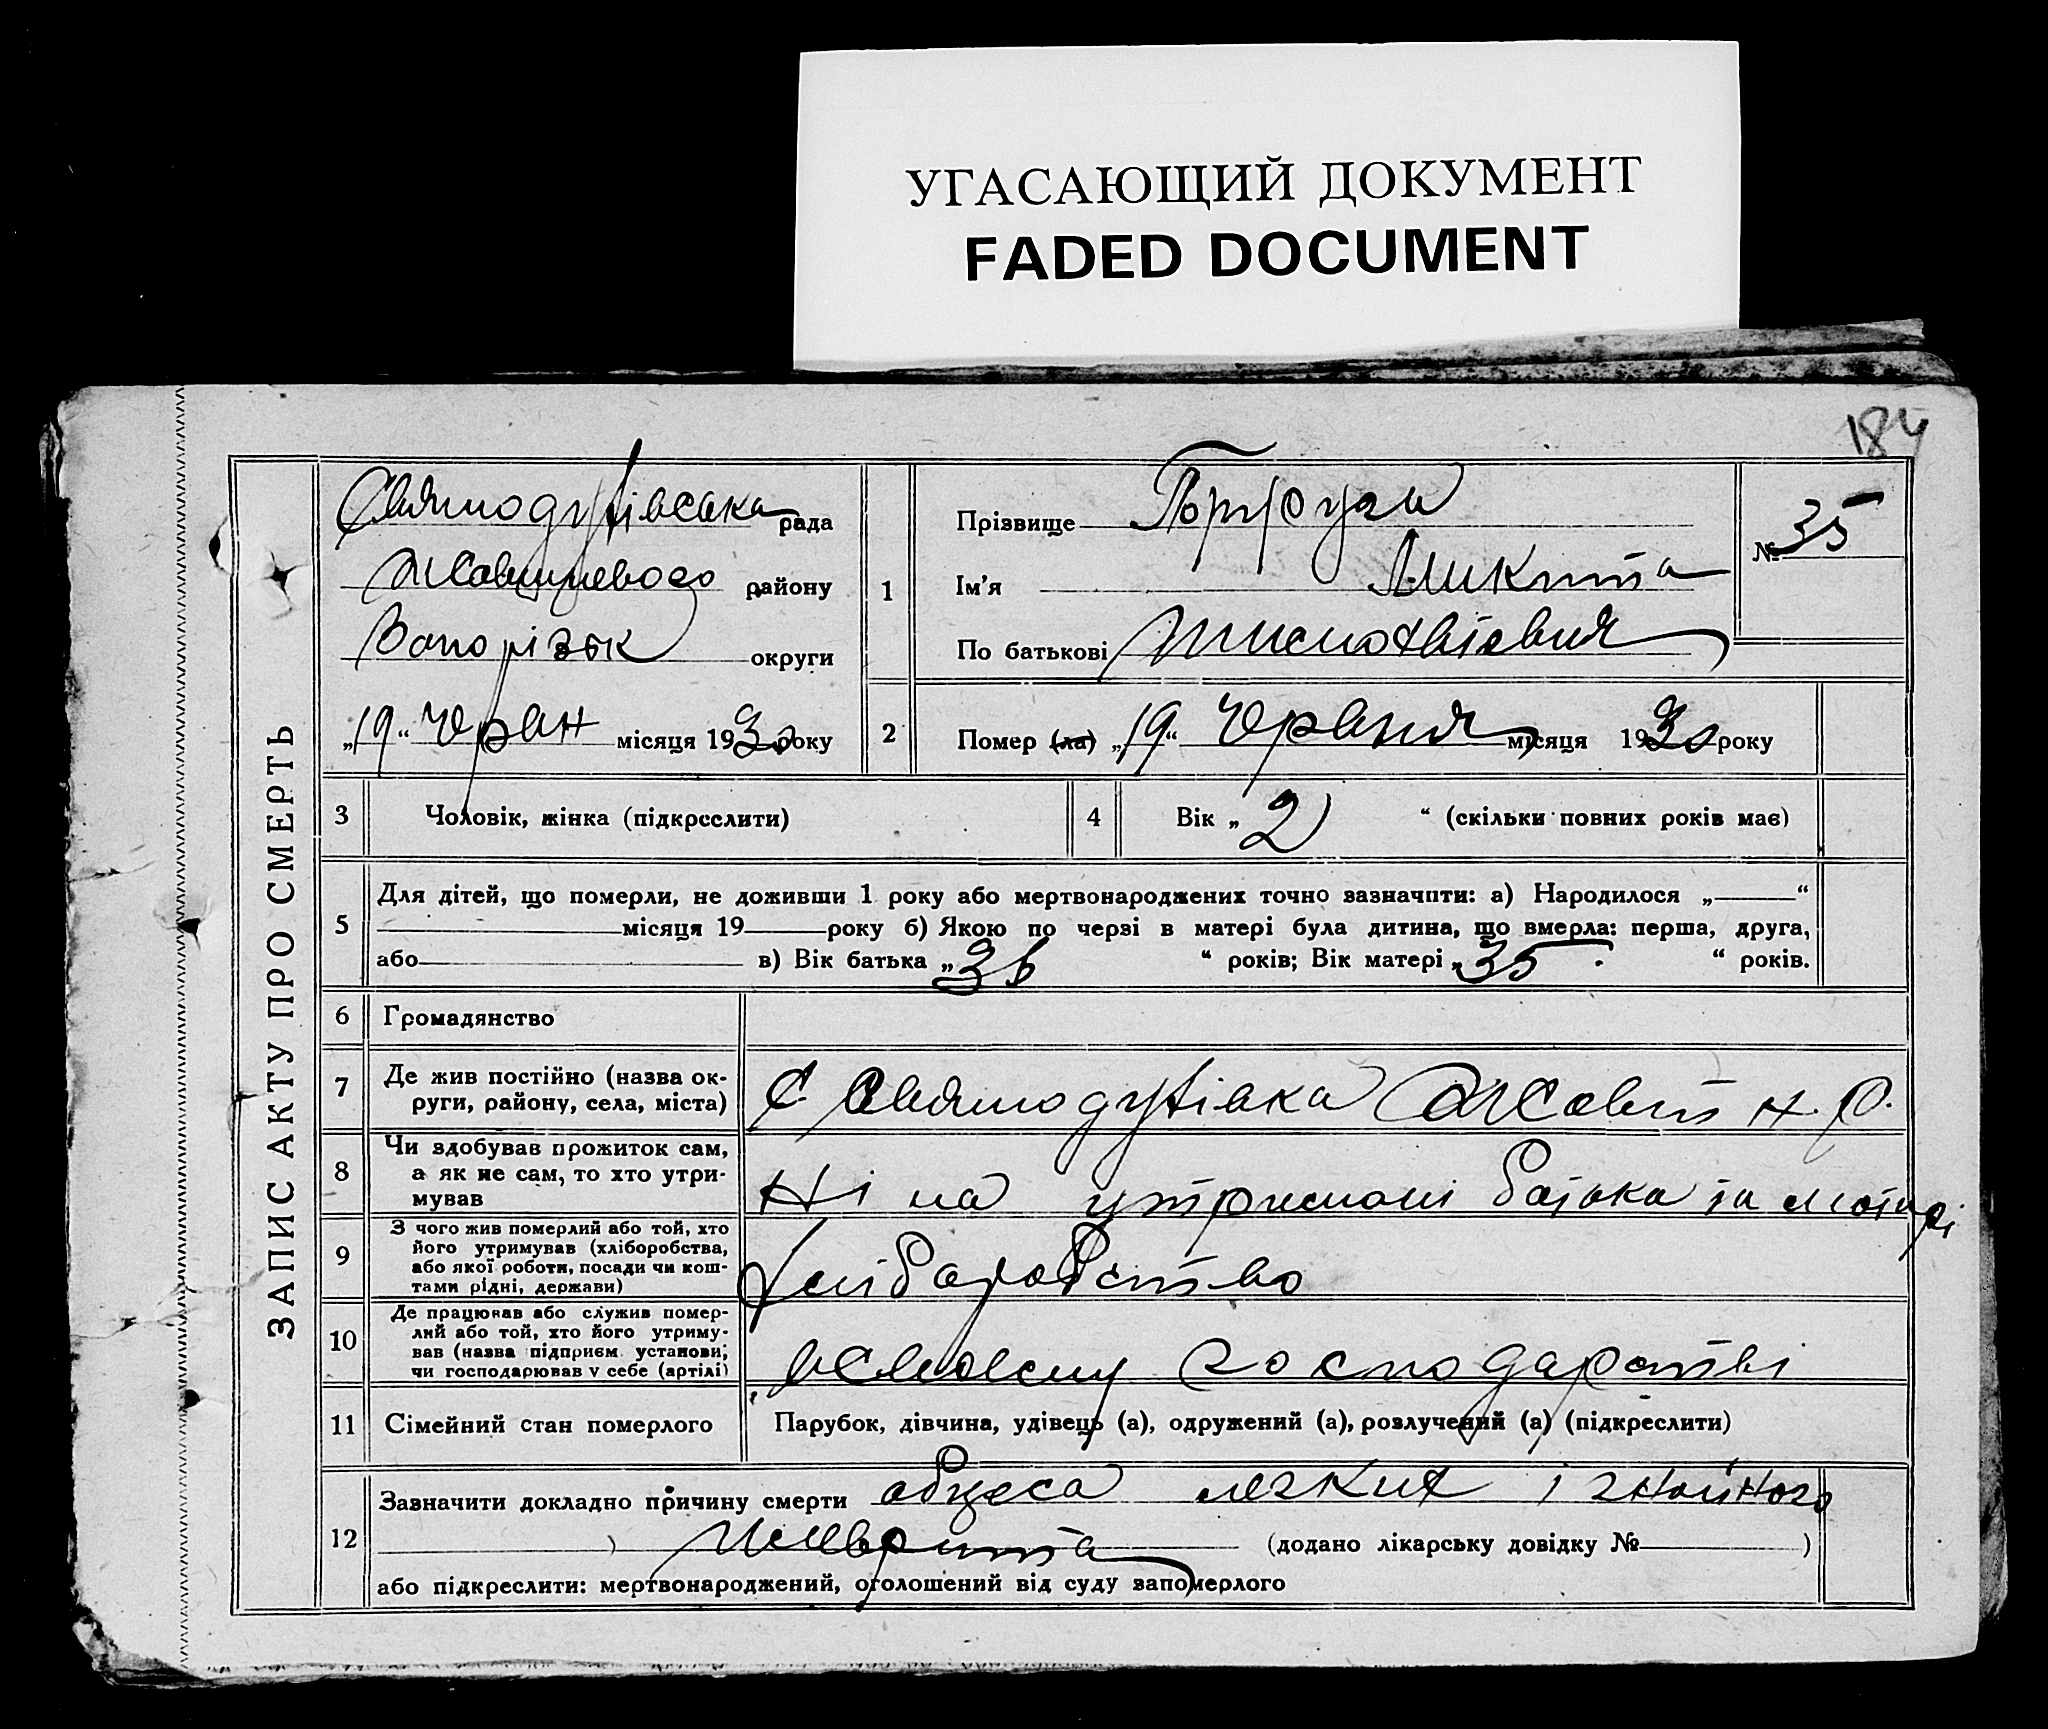 УГАСАЮЩИЙ ДОКУМЕНТ
FADED DOCUMENT
184
ЗАПИС АКТУ ПРО СМЕРТЬ
рада
району
Запорізьк округи
„19“ Червн місяця 1930 року
1
Прізвище
Ім'я Микита
По батькові
№ 35
2
Помер (ла) „19“ Червня місяця 1930 року
3
Чоловік, жінка (підкреслити)
4
Вік „2“ (скільки повних років має)
5
Для дітей, що померли, не доживши 1 року або мертвонароджених точно зазначити: а) Народилося „ “
місяця 19 року б) Якою по черзі в матері була дитина, що вмерла: перша, друга,
або в) Вік батька „36 “ років; Вік матері „35 “ років.
6
Громадянство
7
Де жив постійно (назва ок-
руги, району, села, міста)
С. н. р.
8
Чи здобував прожиток сам,
а як не сам, то хто утри-
мував
Ні на утримані батька та матирі
9
З чого жив померлий або той, хто
його утримував (хліборобства,
або якої роботи, посади чи кош-
тами рідні, держави)
Хліборобство
10
Де працював або служив помер-
лий або той, хто його утриму-
вав (назва підприєм. установи;
чи господарював у себе (артілі)
в своєму господарстві
11
Сімейний стан померлого
Парубок, дівчина, удівець (а), одружений (а), розлучений (а) (підкреслити)
12
Зазначити докладно причину смерти абцеса легких і гнойного
плеврита (додано лікарську довідку № )
або підкреслити: мертвонароджений, оголошений від суду запомерлого